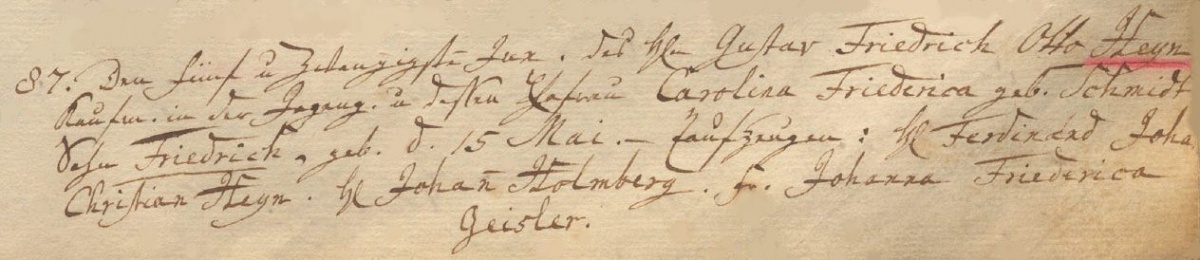 87. Den fünf u Zwanzigste Jun. des Hℓn Gustav Friedrich Otto Heyn
Kaufm. in der u dessen Ehefrau Carolina Friederica geb. Schmidt
Sohn Friedrich, geb. d. 15 Mai. – Taufzeugen: Hℓ Ferdinand Joha
Christian Heyn. Hℓ Johan̄ Holmberg. Fr. Johanna Friederica
Geisler.